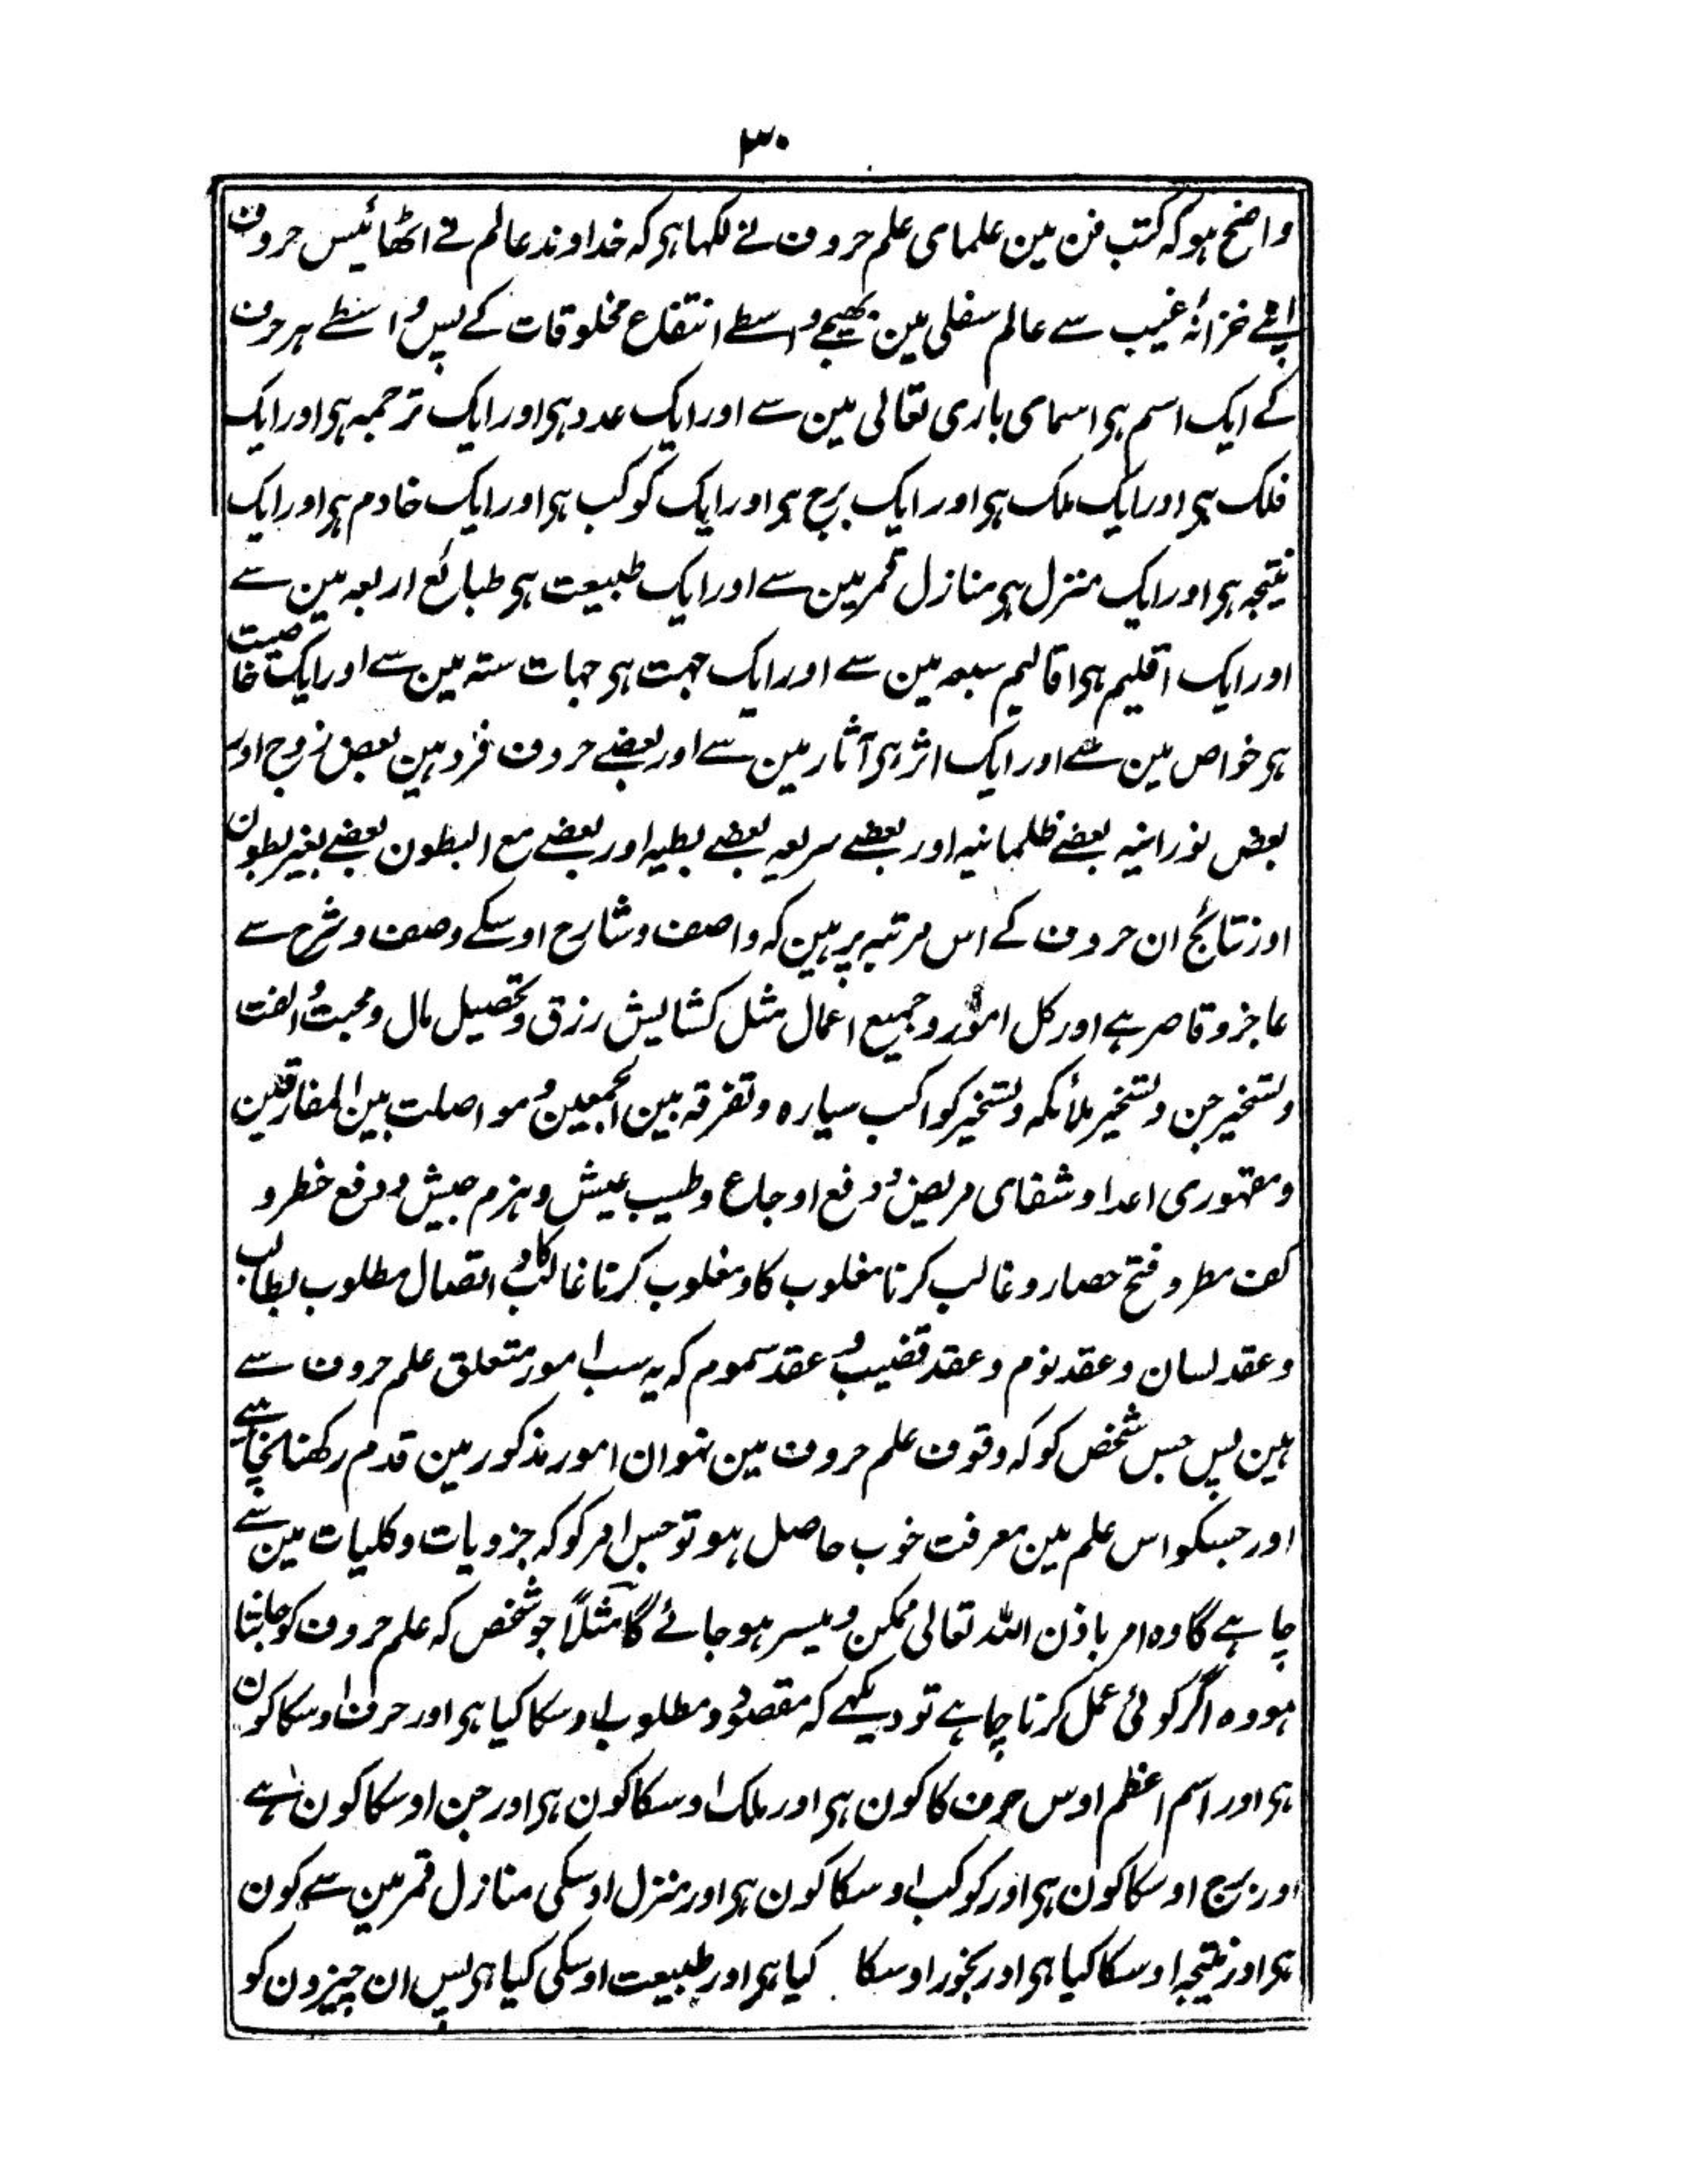 ۳۰
واضح ہوکہ کتب فن مین علمای علم حروف نے لکہا ہی کہ خداوند عالم نے اٹھائیس حروف
اپنے خزانۂ غیب سے عالم سفلی مین بھیجے واسطے انتفاع مخلوقات کے پس واسطے ہر حرف
کے ایک اسم ہی اسمای باری تعالی مین سے اور ایک عدد ہی اور ایک ترجمہ ہی اور ایک
فلک ہی اور ایک ملک ہی اور ایک برج ہی اور ایک کوکب ہی اور ایک خادم ہی اور ایک
نتیجہ ہی اور ایک منزل ہی منازل قمر مین سے اور ایک طبیعت ہی طبائع اربعہ مین سے
اور ایک اقلیم ہی اقالیم سبعہ مین سے اور ایک جہت ہی جہات ستہ مین سے اور ایک خاصیت
ہی خواص مین سے اور ایک اثر ہی آثار مین سے اور بعضے حروف فرد ہین بعض زوج اور
بعض نورانیہ بعضے ظلمانیہ اور بعضے سریعہ بعضے بطیہ اور بعضے مع البطون بعضے بغیر بطون
اور نتائج ان حروف کے اس مرتبہ پر ہین کہ واصف و شارح اوسکے وصف و شرح سے
عاجز و قاصر ہے اور کل امور و جمیع اعمال مثل کشایش رزق و تحصیل مال و محبت و الفت
و تسخیر جن و تسخیر ملائکہ و تسخیر کواکب سیارہ و تفرقہ بین الجمعین و مواصلت بین المفارقین
و مقہوری اعدا و شفای مریض و دفع اوجاع و طیب عیش و ہزم جیش و دفع خطر و
کف مطر و فتح حصار و غالب کرنا مغلوب کا و مغلوب کرنا غالب کا و اتصال مطلوب بطالب
و عقد لسان و عقد نوم و عقد قضیب و عقد سموم کہ یہ سب امور متعلق علم حروف سے
ہین پس جس شخص کو کہ وقوف علم حروف مین نہو ان امور مذکور مین قدم رکھنا نچاہیے
اور جسکو اس علم مین معرفت خوب حاصل ہو تو جس امر کو کہ جزویات و کلیات مین سے
چاہے گا وہ امر باذن اللہ تعالی ممکن و میسر ہو جائے گا مثلاً جو شخص کہ علم حروف کو جانتا
ہو وہ اگر کوئی عمل کرنا چاہے تو دیکہے کہ مقصود و مطلوب اوسکا کیا ہی اور حرف اوسکا کون
ہی اور اسم اعظم اوس حرف کا کون ہی اور ملک اوسکا کون ہی اور جن اوسکا کون ہے
اور برج اوسکا کون ہی اور کوکب اوسکا کون ہی اور منزل اوسکی منازل قمر مین سے کون
ہی اور نتیجہ اوسکا کیا ہی اور بخور اوسکا کیا ہی اور طبیعت اوسکی کیا ہی پس ان چیزون کو